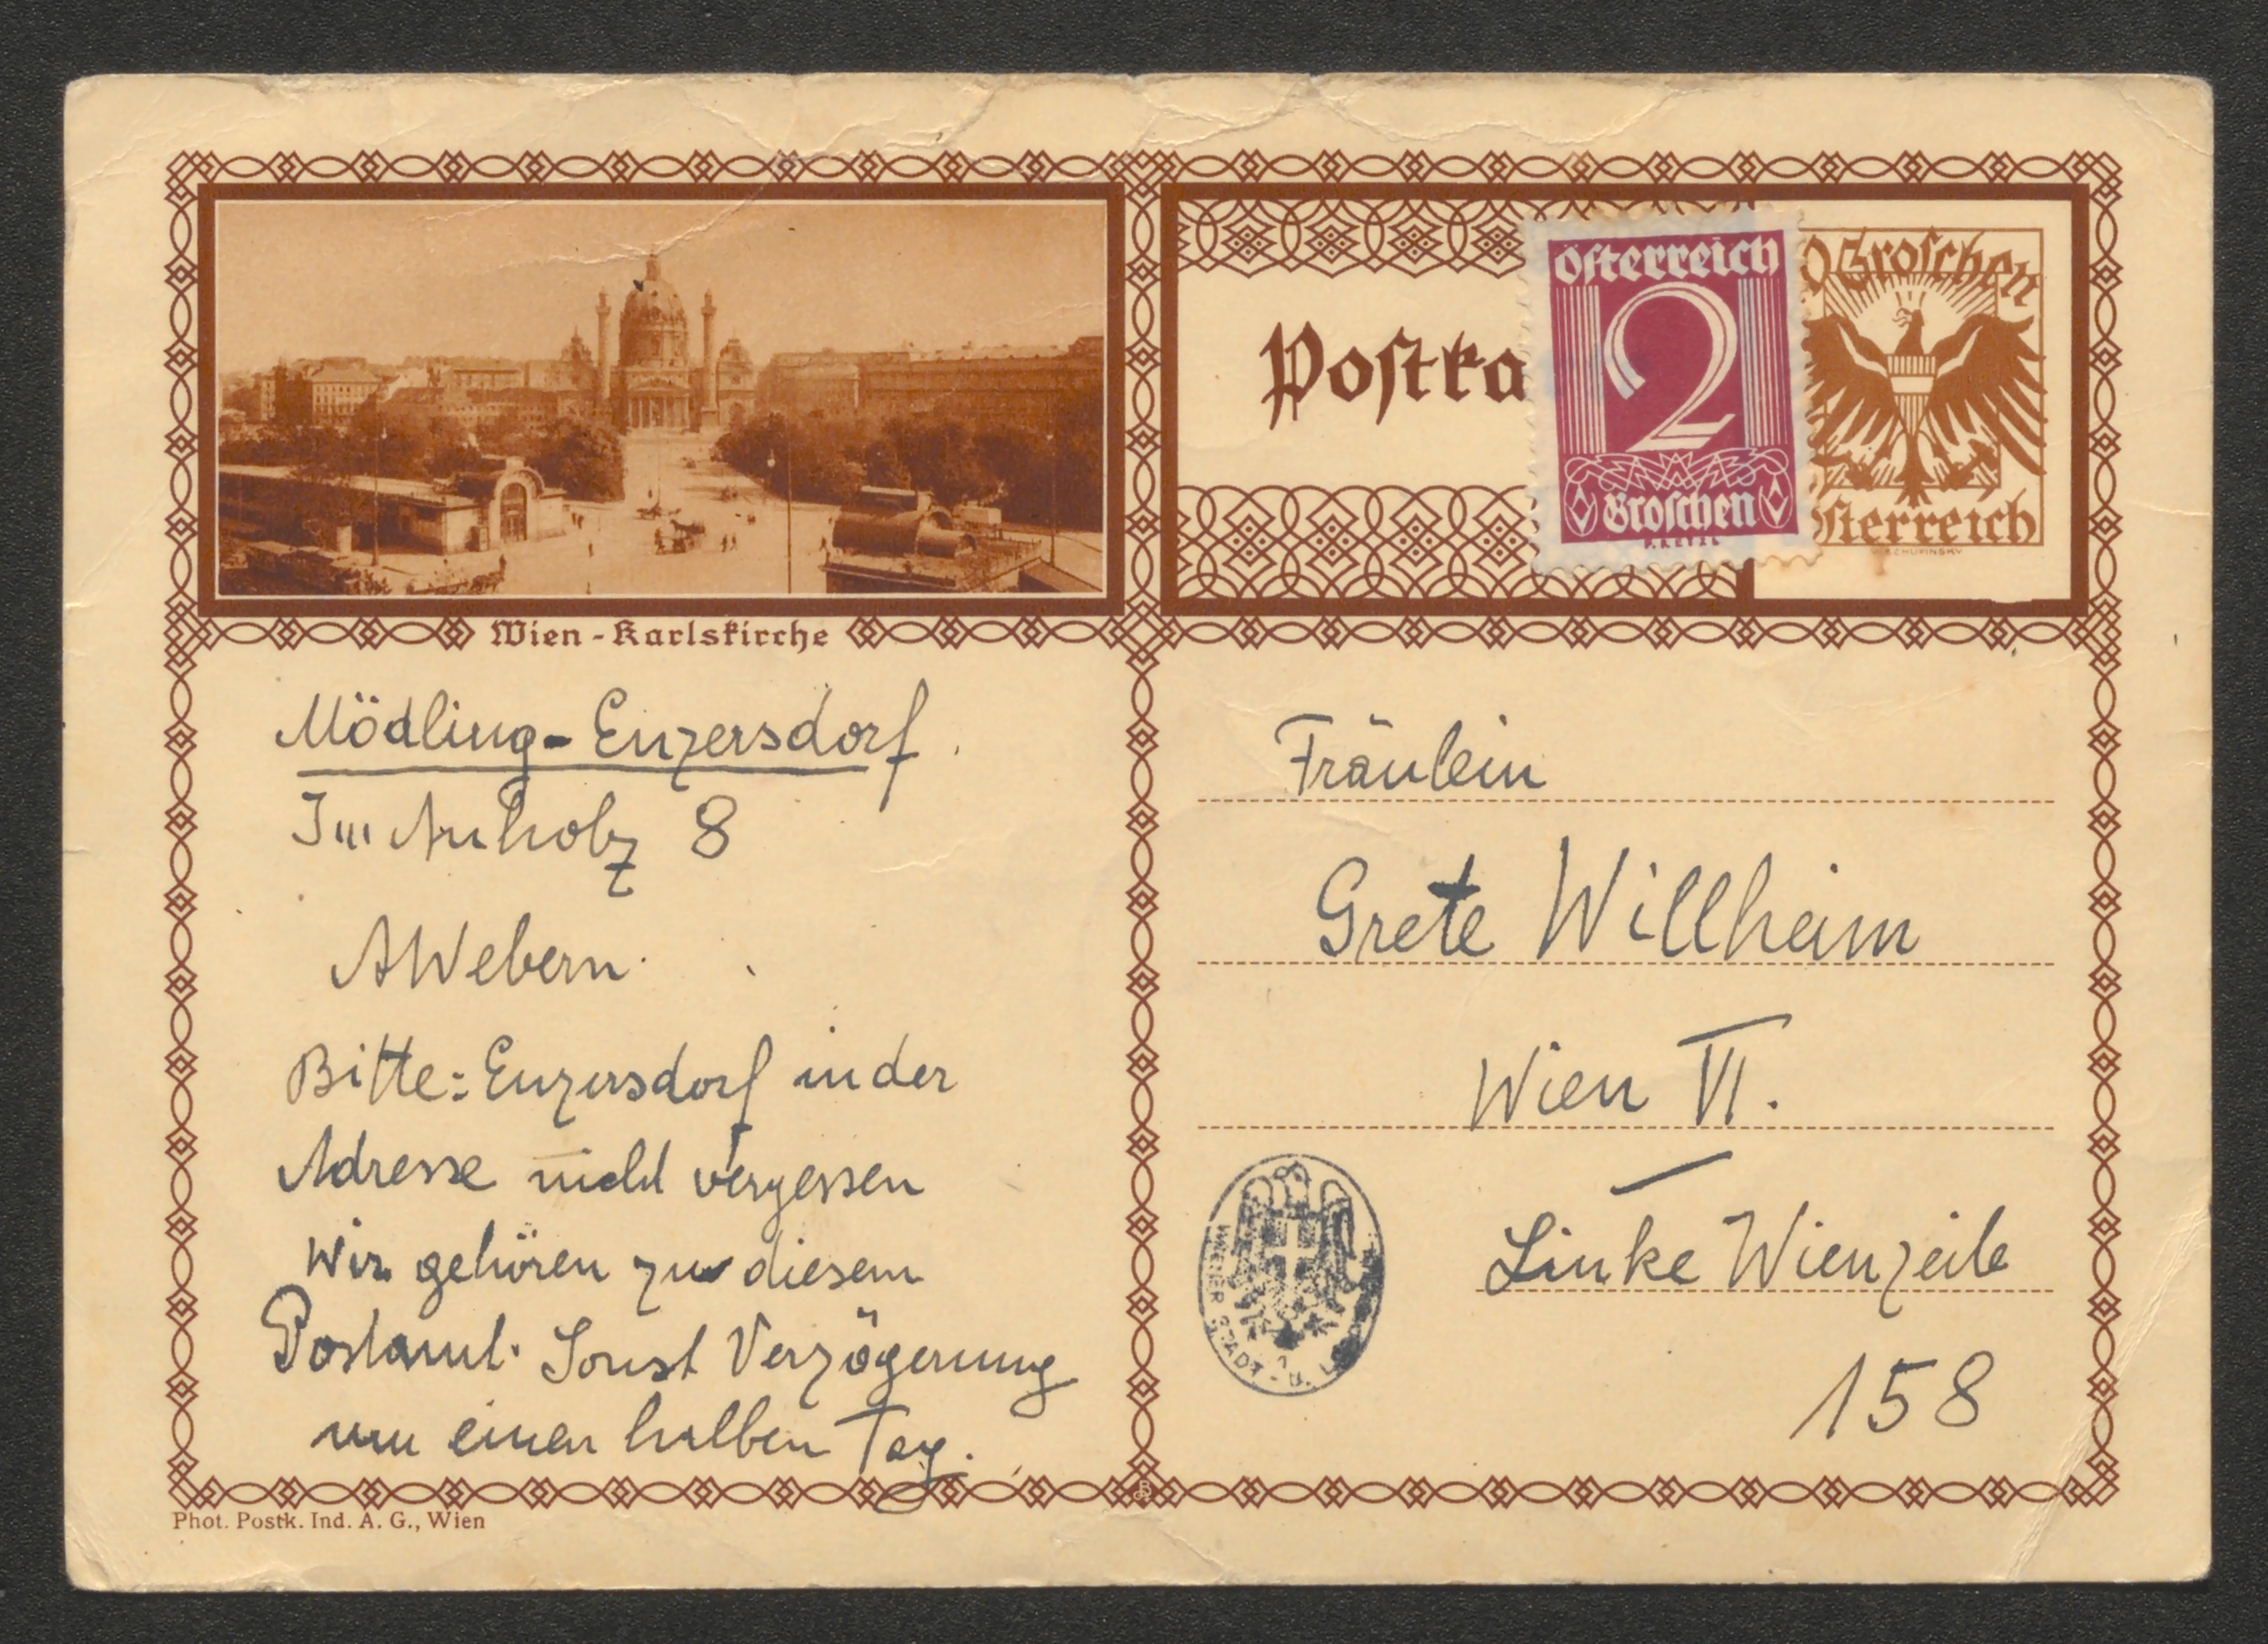 Wien - Karlskirche
Mödling - Enzersdorf.
Im Auholz 8
AWebern.
Bitte: Enzersdorf in der
Adresse nicht vergessen
Wir gehören zu diesem
Postamt. Sonst Verzögerung
um einen halben Tag.
Phot. Postk. Ind. A. G., Wien
Postka
Österreich
2
Groschen
0 Groschen
sterreich
Fräulein
Grete Willheim
Wien VI.
Linke Wienzeile
158
WIENER STADT- U. L